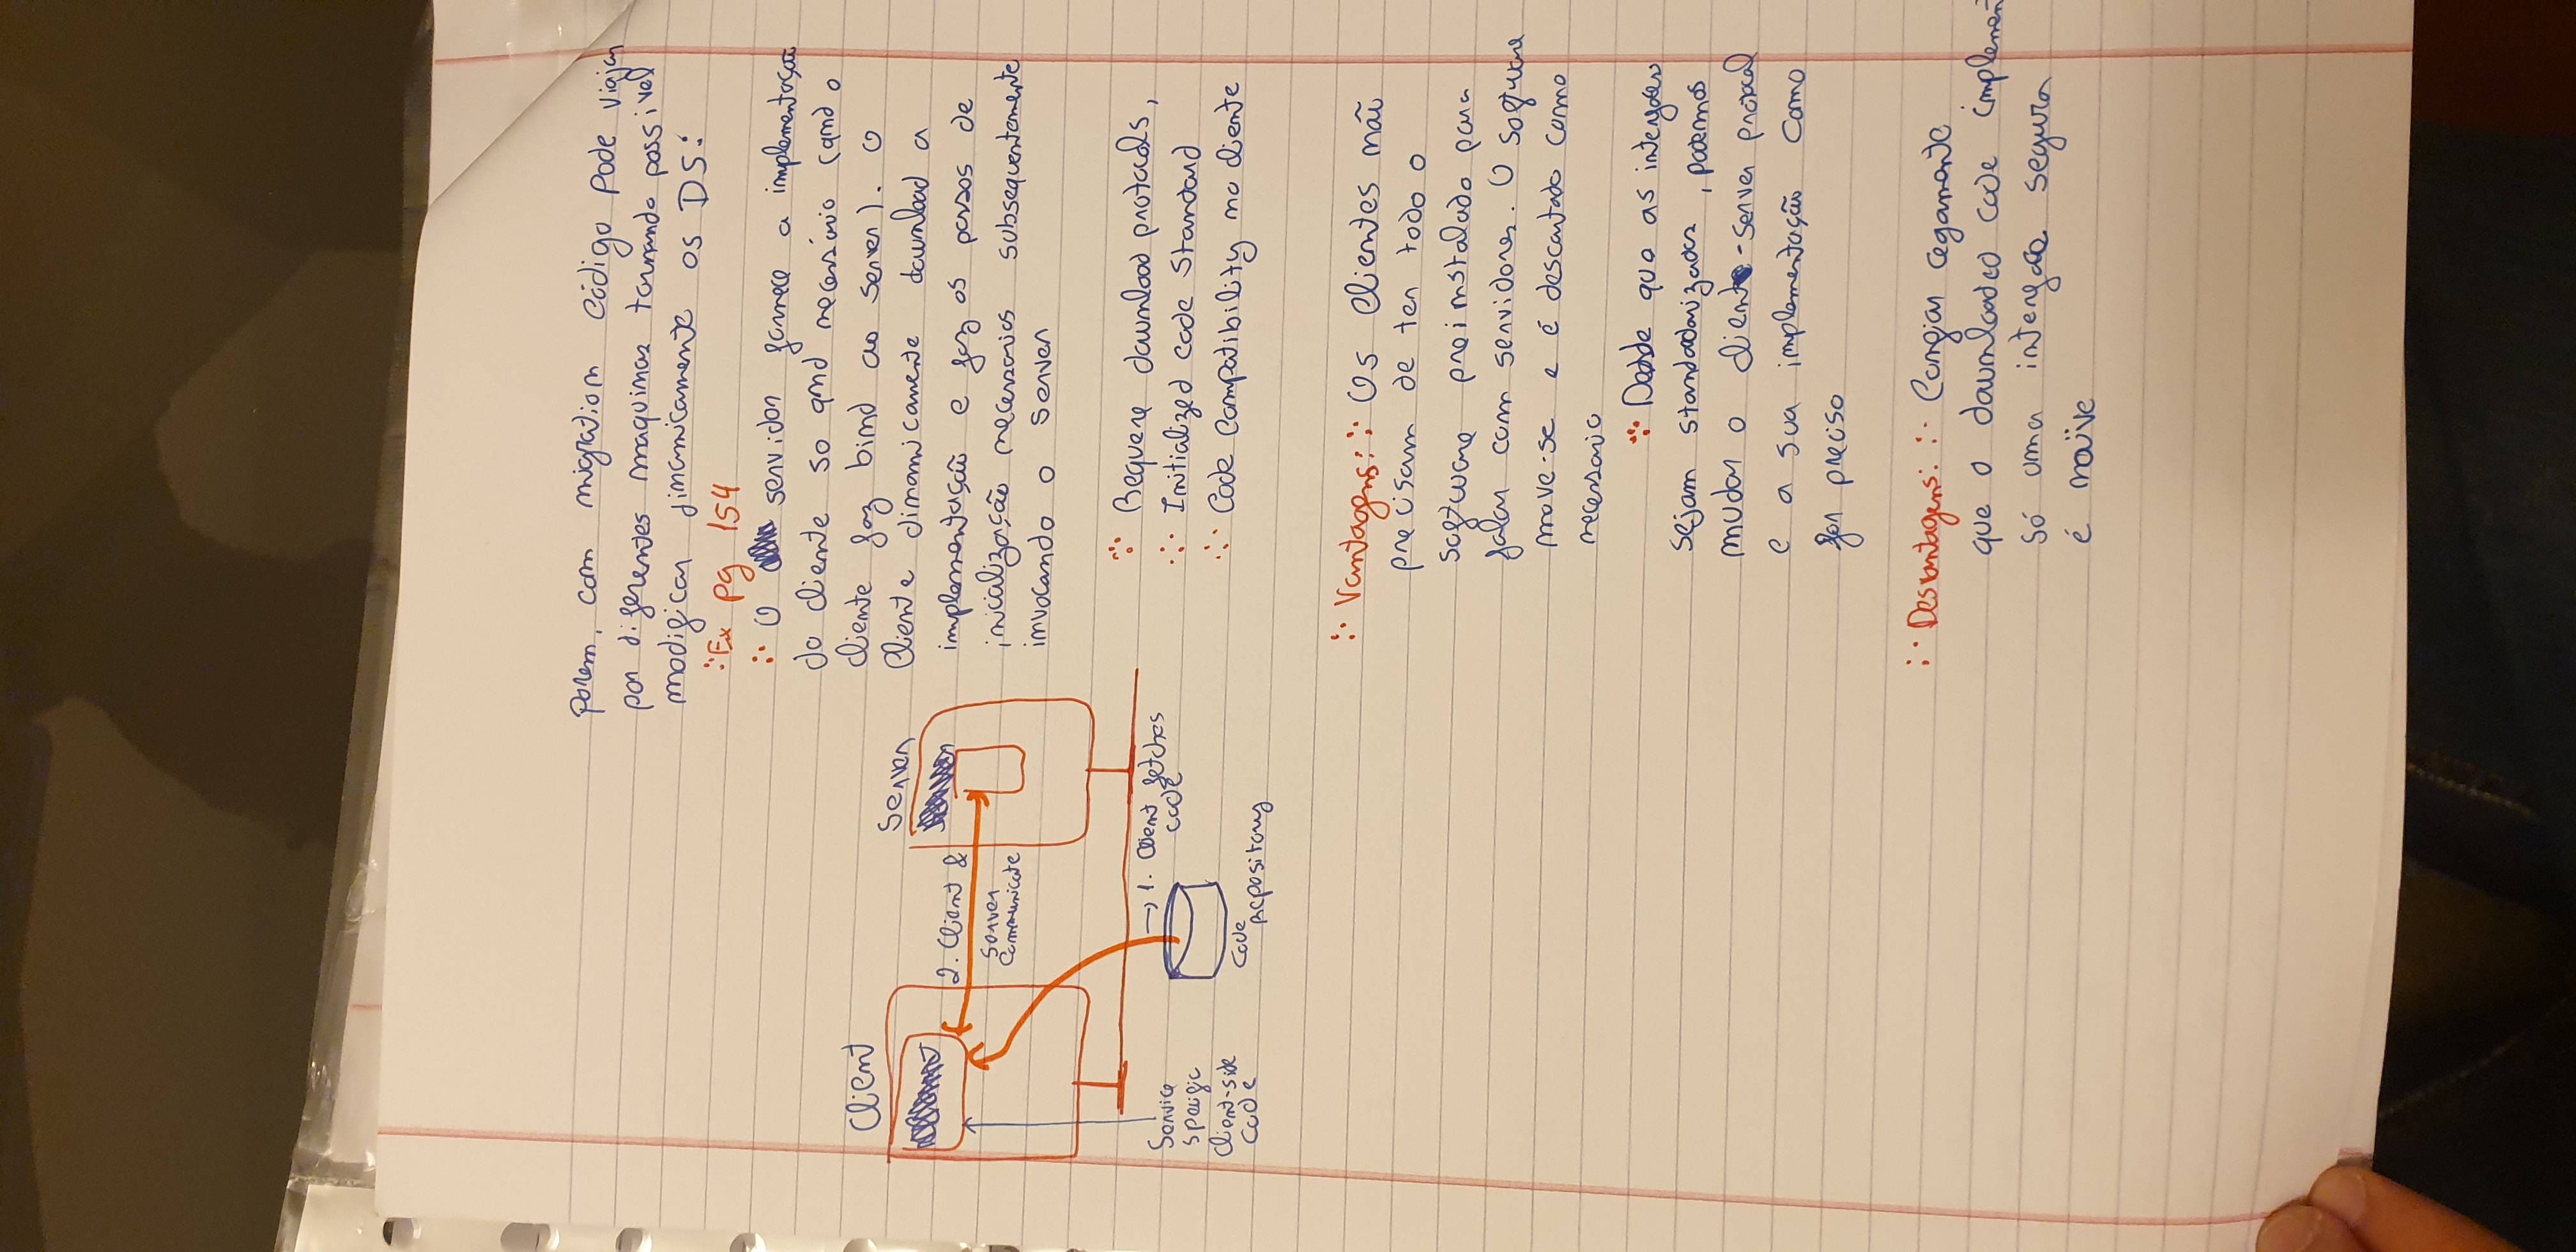 porem, com migration código pode viajar
por diferentes maquinas tornando possivel
modificar dinamicamente os DS:
Ex pg 154
O servidor fornece a implementação
do cliente so qnd necessário (qnd o
cliente faz bind ao server). O
Cliente dinamicamente download a
implementação e faz os passos de
inicialização necessarios subsequentemente
invocando o server
Client
Server
2. Client &
Server
Communicate
1. Client fetches
code
Service
Specific
Client-side
code
Code
Repository
Requere download protocols,
Initialized code Standard
Code Compatibility no cliente
Vantagens: Os Clientes não
precisam de ter todo o
software preinstalado para
falar com servidores. O software
move-se e é descartado como
necessario
Desde que as interfaces
sejam standadarizadas, podemos
mudar o cliente-server protocol
e a sua implementação como
for preciso
Desvantagens: Confiar cegamente
que o downloaded code implement
só uma interface segura
é naïve